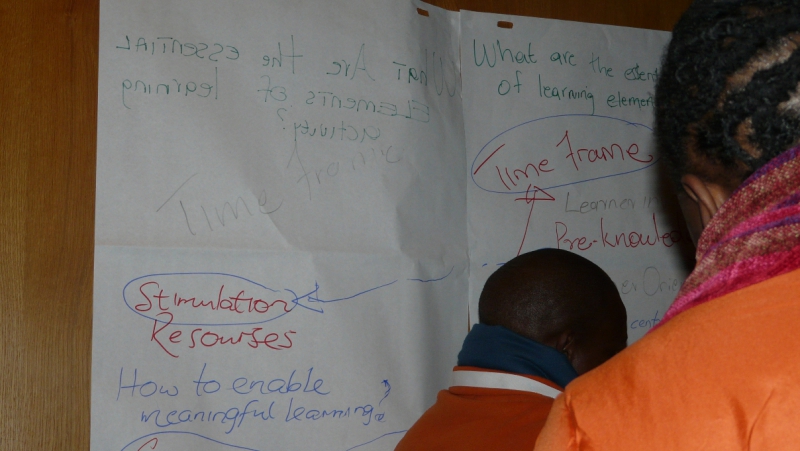 What Are the essential
Elements of learning
activity?
Time frame
Stimulation
Resourses
How to enable
meaningful learning?
What are the essen
of learning elemen
Time frame
Learner in
Pre-knowle
er Orie
cent